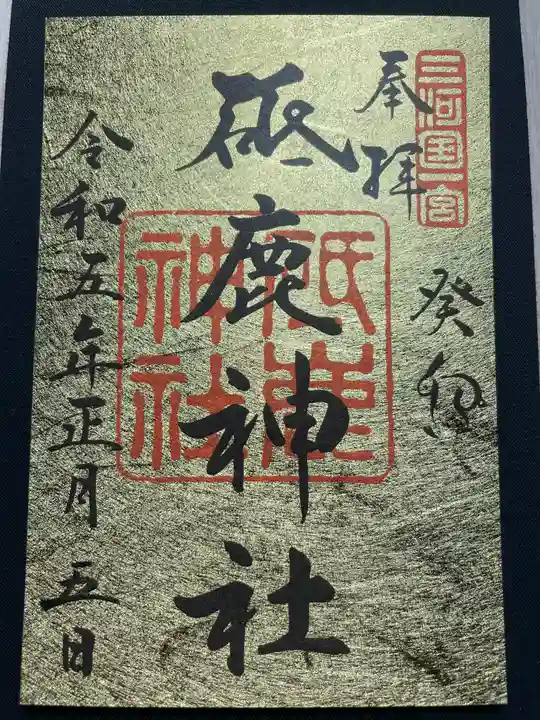 三河国一宮
癸卯
奉拝
砥鹿神社
砥鹿神社
令和五年正月五日